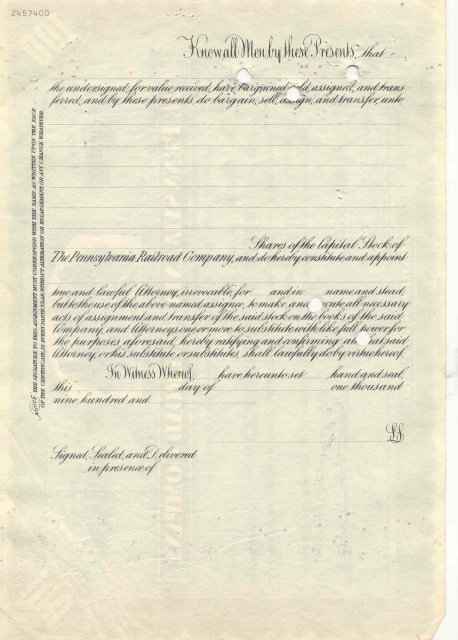 Z457400
Know all Men by these Presents, that
the undersigned, for value received, have bargained, sold, assigned, and trans
ferred, and by these presents, do bargain, sell, assign, and transfer, unto
Shares of the Capital Stock of
The Pennsylvania Railroad Company, and do hereby constitute and appoint
true and lawful Attorney, irrevocable, for and in name and stead,
but to the use of the above named assignee, to make and execute all necessary
acts of assignment and transfer of the said stock on the books of the said
Company, and Attorneys one or more to substitute with like full power for
the purposes aforesaid, hereby ratifying and confirming all that said
Attorney or his substitute or substitutes, shall lawfully do by virtue hereof.
In Witness Whereof, have hereunto set hand and seal,
this day of one thousand
nine hundred and
L.S.
Signed, Sealed, and Delivered
in presence of
NOTICE THE SIGNATURE TO THIS ASSIGNMENT MUST CORRESPOND WITH THE NAME AS WRITTEN UPON THE FACE
OF THE CERTIFICATE IN EVERY PARTICULAR WITHOUT ALTERATION OR ENLARGEMENT OR ANY CHANGE WHATEVER.